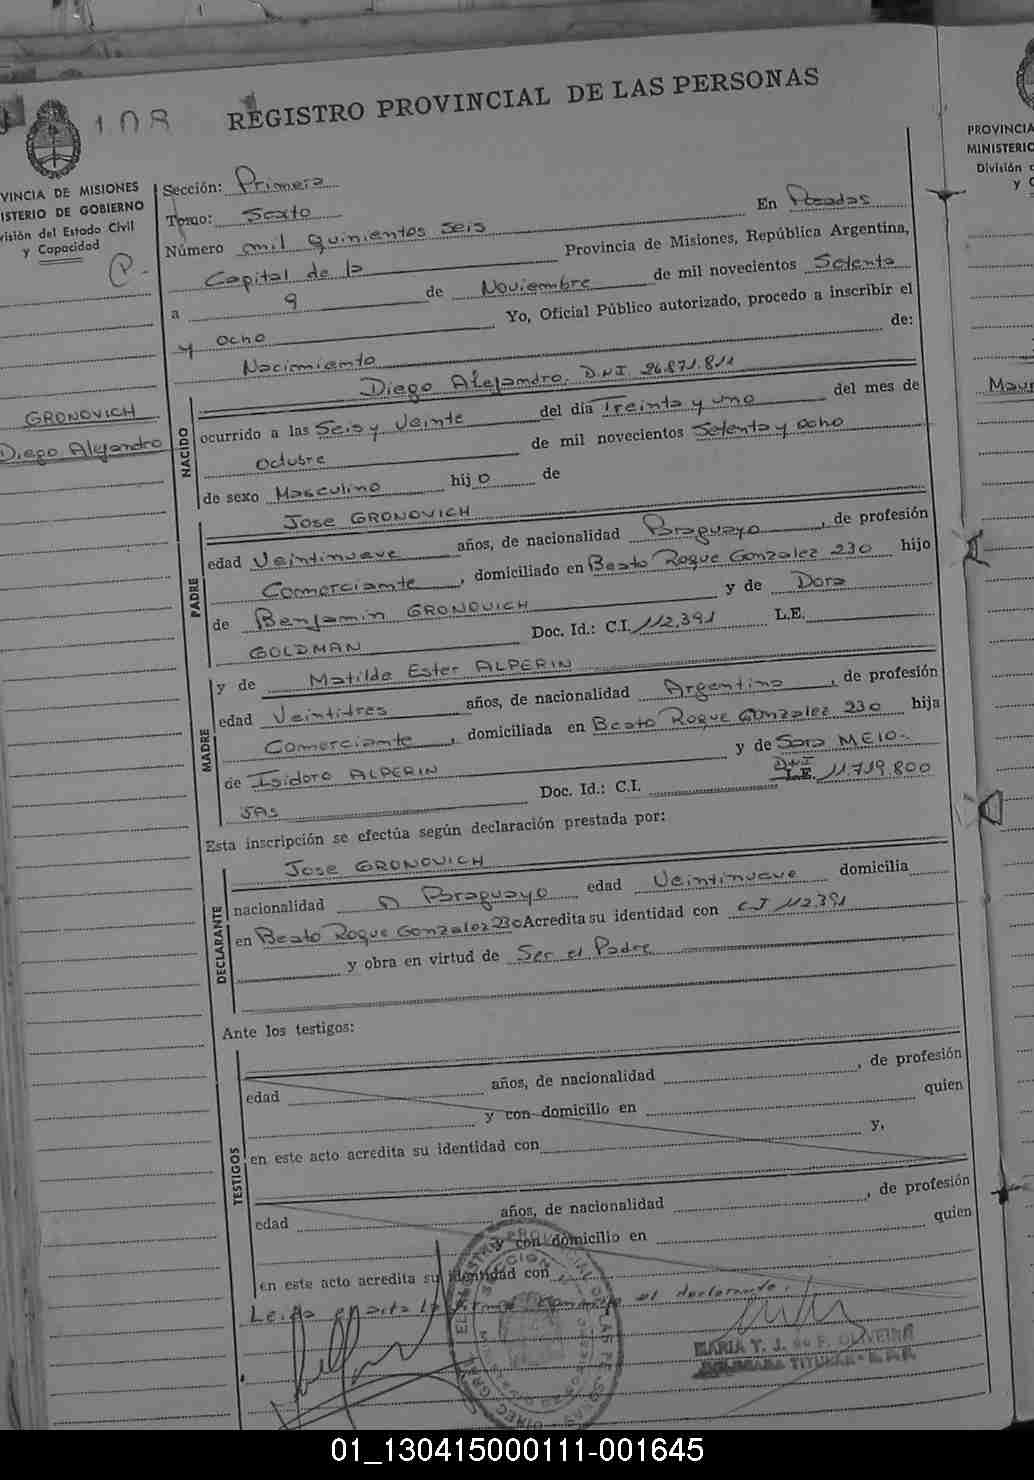 108
REGISTRO PROVINCIAL DE LAS PERSONAS
VINCIA DE MISIONES
ISTERIO DE GOBIERNO
visión del Estado Civil
y Capacidad
P.-
GRONOVICH
Diego Alejandro
Sección: Primera
Tomo: Sexto
Número mil quinientos seis En Posadas
Capital de la Provincia de Misiones, República Argentina,
a 9 de Noviembre de mil novecientos Setenta
y ocho Yo, Oficial Público autorizado, procedo a inscribir el
Nacimiento de:
NACIDO
Diego Alejandro. D.N.I. 26.871.811
ocurrido a las Seis y Veinte del día Treinta y uno del mes de
Octubre de mil novecientos Setenta y ocho
de sexo Masculino hijo de
PADRE
Jose GRONOVICH
edad Veintinueve años, de nacionalidad Paraguayo, de profesión
Comerciante, domiciliado en Beato Roque Gonzalez 230 hijo
de Benjamin GRONOVICH y de Dora
GOLDMAN Doc. Id.: C.I. 112.391 L.E.
MADRE
y de Matilde Ester ALPERIN
edad Veintitres años, de nacionalidad Argentina, de profesión
Comerciante, domiciliada en Beato Roque Gonzalez 230 hija
de Isidoro ALPERIN y de Sara MEIO-
JAS Doc. Id.: C.I. L.E. DNI 11.719.800
Esta inscripción se efectúa según declaración prestada por:
DECLARANTE
Jose GRONOVICH
nacionalidad Paraguayo edad Veintinueve domicilia
en Beato Roque Gonzalez 230 Acredita su identidad con C.I 112.391
y obra en virtud de Ser el Padre
Ante los testigos:
TESTIGOS
edad años, de nacionalidad , de profesión
y con domicilio en quien
en este acto acredita su identidad con y,
edad años, de nacionalidad , de profesión
y con domicilio en quien
en este acto acredita su identidad con
Leida el acta la firma conmigo el declarante.
MARIA T. J. de F. OLIVEIRA
PROVINCIA
MINISTERIO
División
y
Maur
01_130415000111-001645